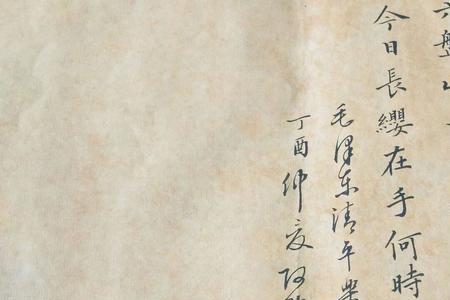 六盤山
今日長纓在手何時
毛澤东清平樂
丁酉仲夏